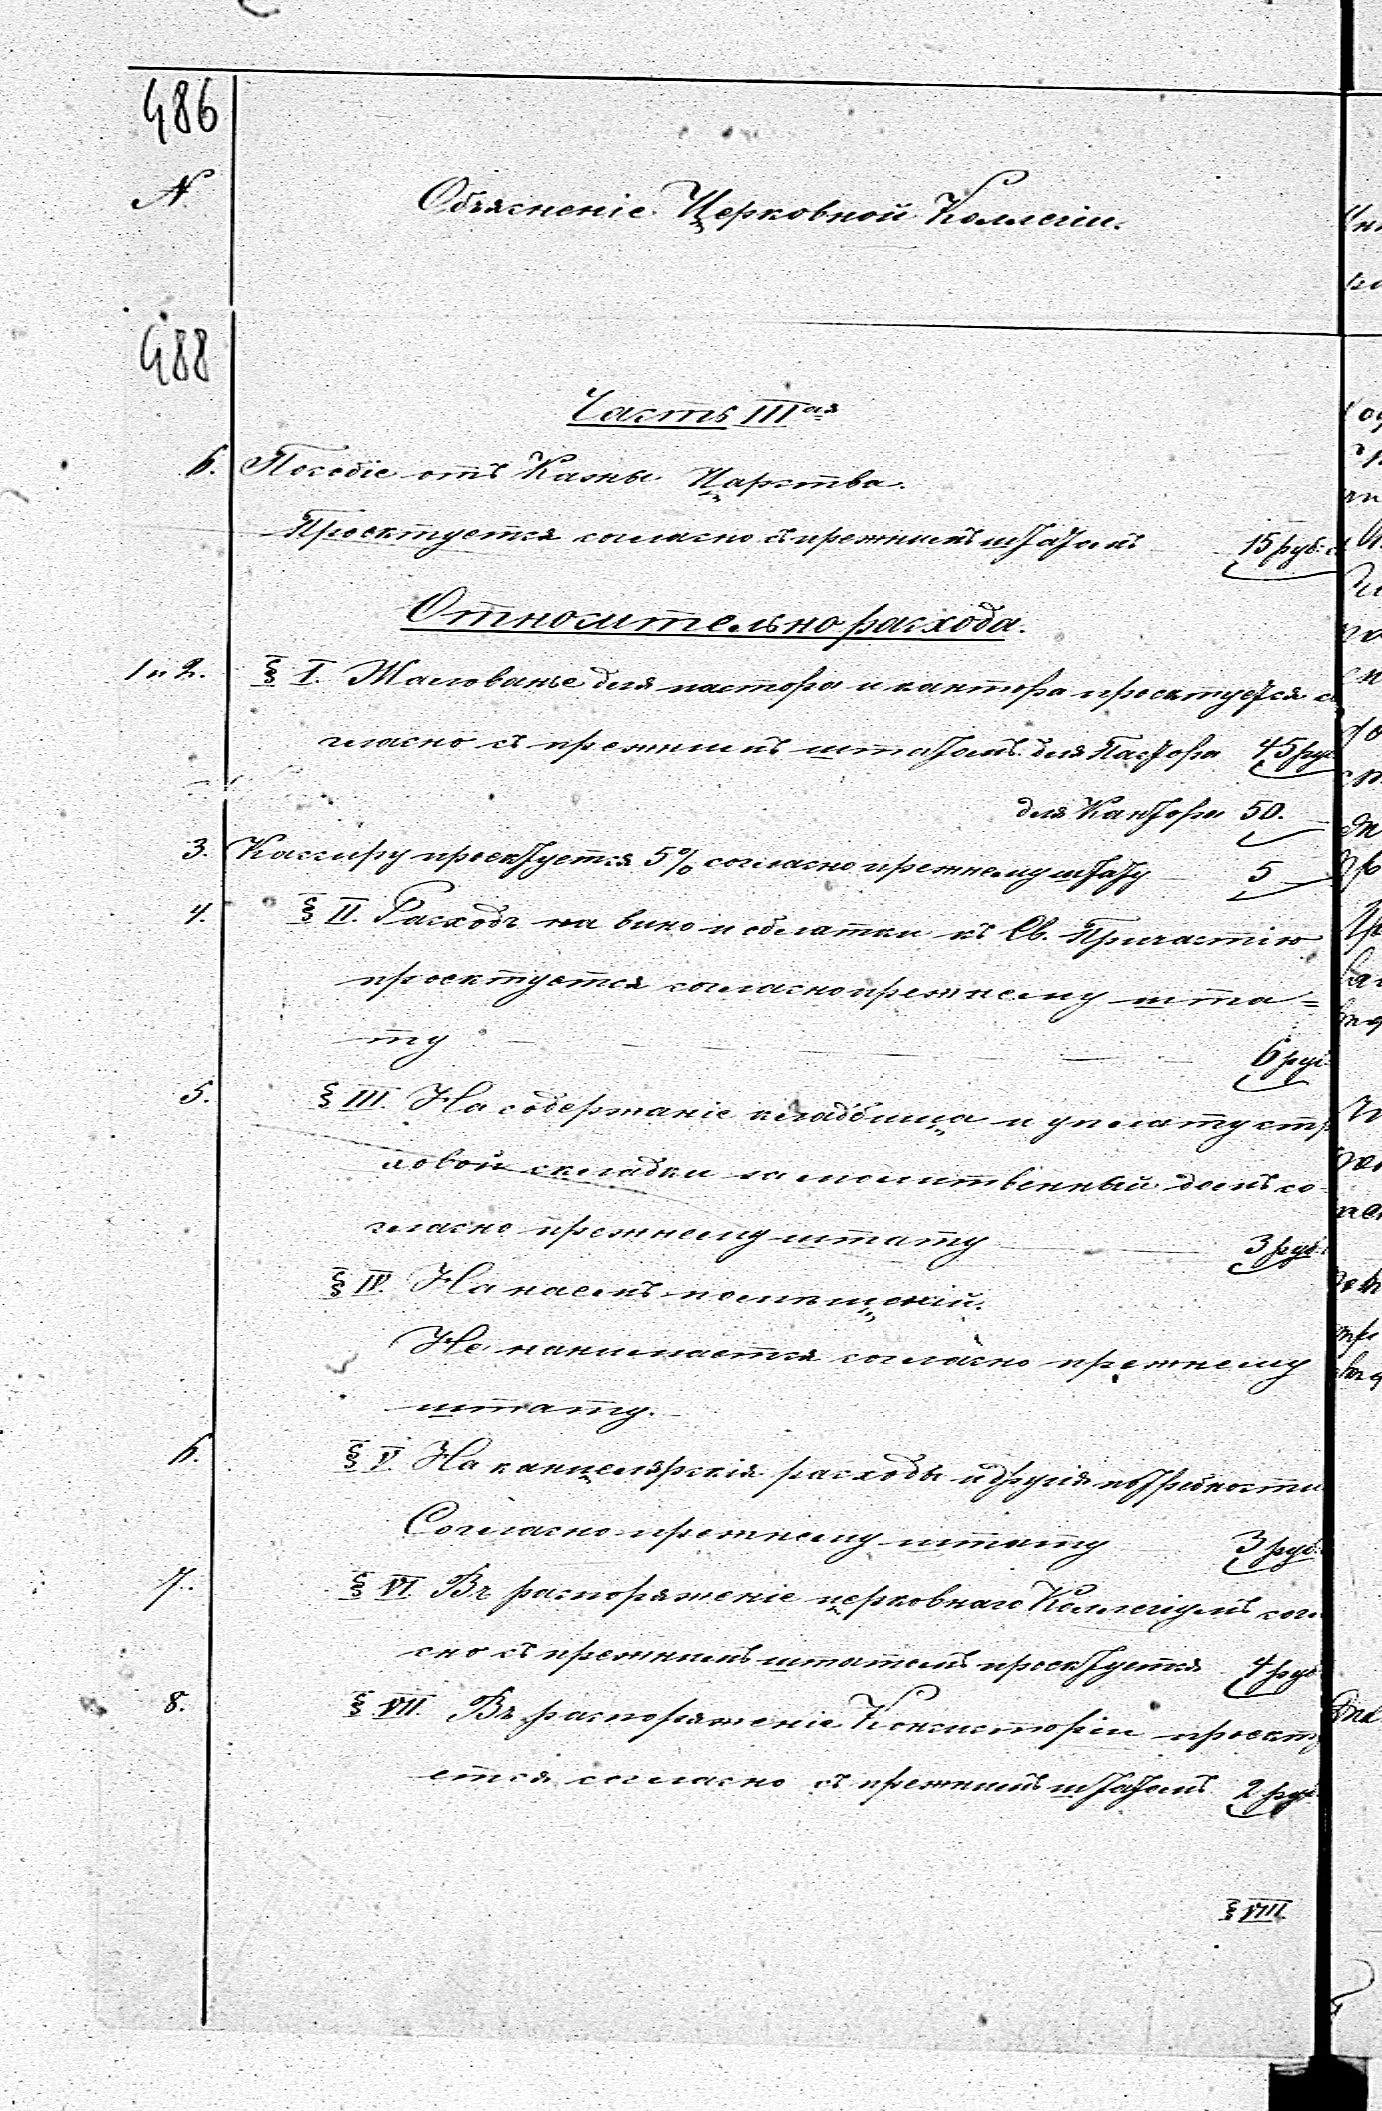 486
N.
Объясненіе Церковной Коллегіи.
488
Часть III<sup>ая</sup>
6. Пособіе отъ Казны Царства.
Проектуется согласно съ прежнимъ штатомъ 15 руб. с
Относительно расхода.
1 и 2. § I. Жалованье для пастора и кантора проектуется со
гласно съ прежнимъ штатомъ для Пастора 45 руб
для Кантора 50.
3. Кассиру проектуется 5% согласно прежнему штату 5
4. § II. Расходъ на вино и облатки къ Св. Причастію
проектуется согласно прежнему шта=
ту 6 руб.
5. § III. На содержаніе кладбища и уплату стра
ховой складки за молитвенный домъ со
гласно прежнему штату 3 руб.
§ IV. На наемъ помѣщеній.
Не нанимается согласно прежнему
штату.
6. § V. На канцелярскія расходы и другія потребности
Согласно прежнему штату 3 руб.
7. § VI. Въ распоряженіе церковнаго Коллегіумъ согла
сно съ прежнимъ штатомъ проектуется 4 руб
8. § VII. Въ распоряженіе Консисторіи проекту
ется согласно съ прежнимъ штатомъ 2 руб
§ VIII